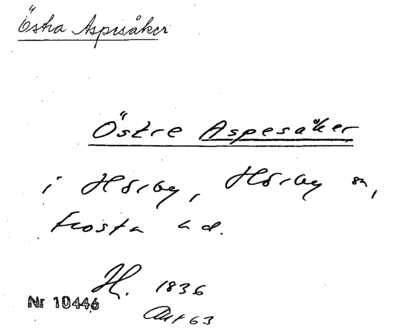 Östra Aspesåker
Östre Aspesåker
i Hörby, Hörby sn,
Frosta hd.
H. 1836
Nr 10446
Akt 63